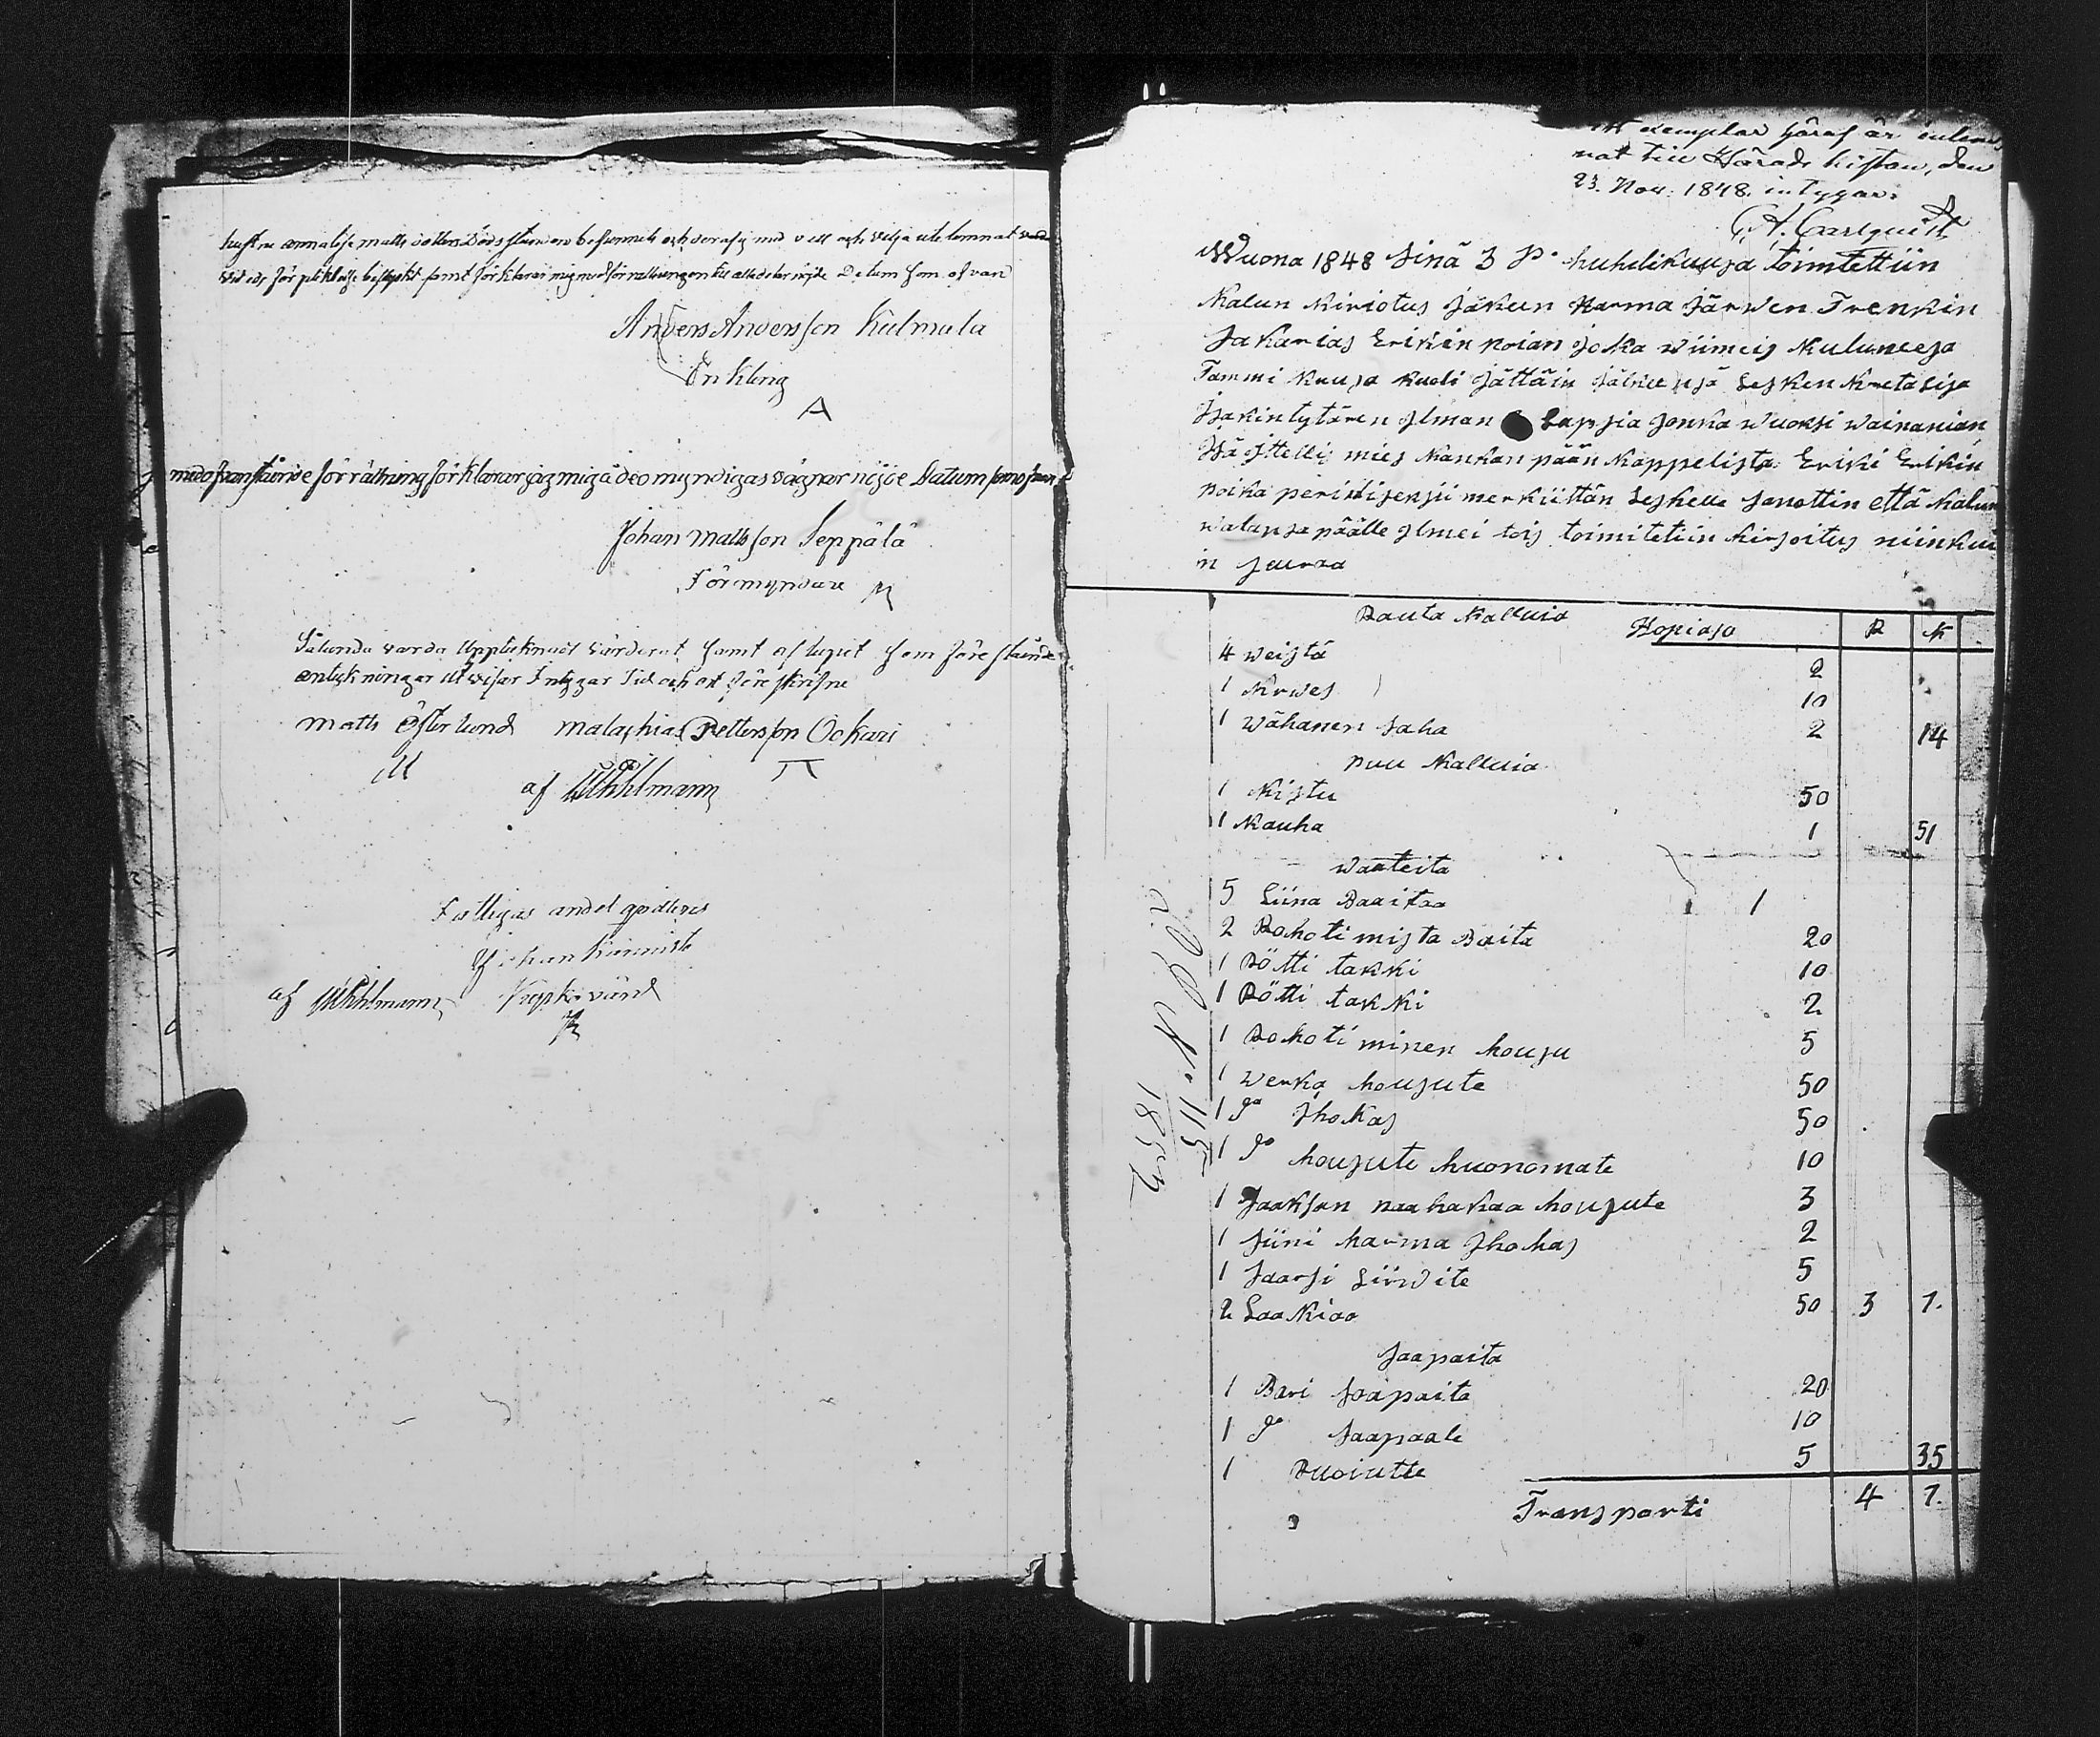 hustru annalisa matts dotters Döds stunden befinnets och veraf med vett och vilja utelemnat varde
vid edz förpliktelse bestyrkt samt förklarar mig med förrättningen till alla delar nöjde Datum som ofvan
Anders Andersson Kulmula
Enkling
A
med ofvanstående förrättning förklarar jag mig å de omyndigas vägnar nöjde Datum som ofvan
Johan Mattsson Seppälä
Förmyndare
Sålunda varda Upptecknadt värderat samt aflupit som förestående
antekningar utvisar Intygar Tid och ort före skrifne
matts Österlund malachias Pettersson Ockari
M
af Wählmann
Fattigas andel qvitteres
Johan Kännistö
af Wählmann Kyrkovärd
ett exemplar häraf är inlem
nat till Härads kistan, den
23. Nov. 1848. intygar.
C. A. Carlquist
Wuona 1848 sinä 3 P. huhdikuusa toimtettiin
Kalun Kiriotus jäkeen Karma Järwen Trenkin
Sakarias Erikin poian joka wiimeis Kuluneesa
Tammi Kuusa kuoli Jättäin jälkeensä Lesken Kreta Lisa
Isakintytären Ilman Lapsia jonka wuoksi wainanian
Itä Ittelli mies Kankanpään Kappelista Eriki Erikin
poika perillisensii merkiittän Leskelle sanottin että Kalun
walansa päälle Ilmei tois toimitetiin kirjoitus niinkui
n seuraa
Rauta Kalluia Hopiasa R K
4 weistä 2
1 Kirwes 10
1 wähänen saha 2 14
puu Kalluia
1 Kistu 50
1 Kauha 1 51
Waateita
5 Liina Paaitaa 1
2 Rohotimista Paita 20
1 Rötti takki 10
1 Rötti takki 2
1 Rohotiminen housu 5
1 werka housute 50
1 do Ihokas 50
1 do housute huonomate 10
1 Saaksan naahakaa housute 3
1 siini harma Ihokas 2
1 saarsi Liiwite 5
2 Laakiaa 50 3 7.
Saapaita
1 Pari saapaita 20
1 do saapaale 10
1 Ruoiutte 5 35
Transporti 4 7.
N. 115
1852